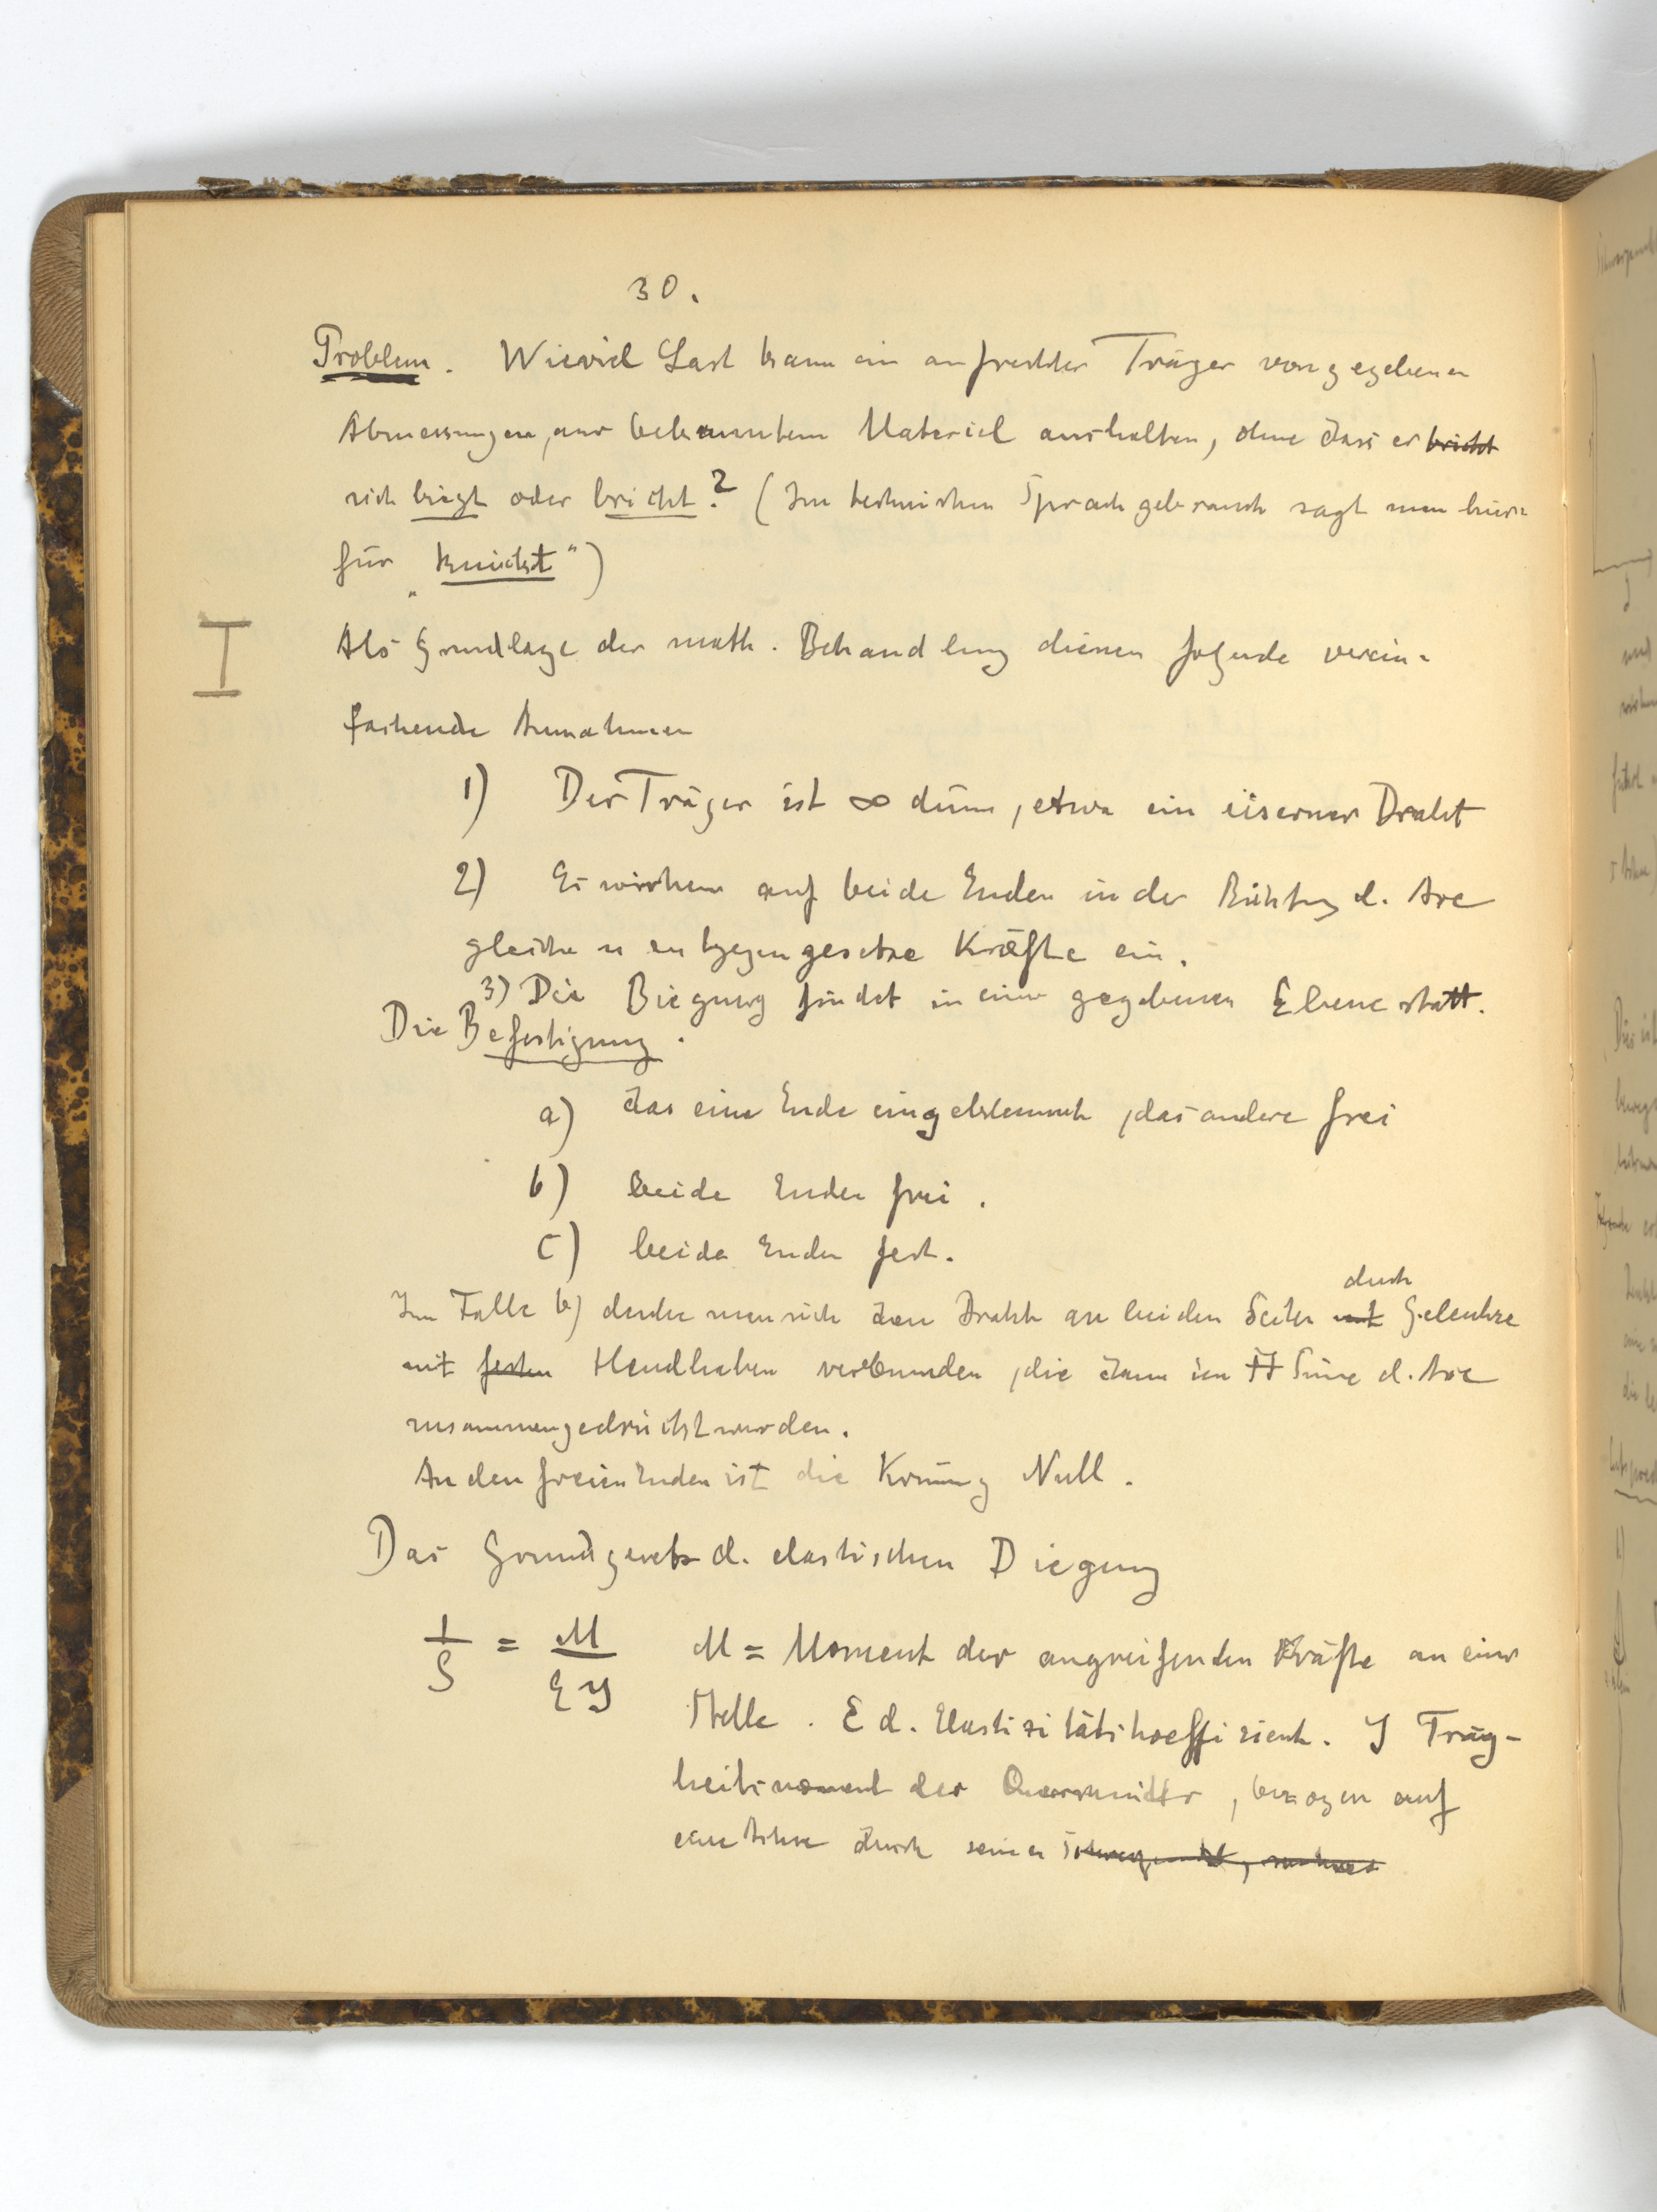 30.
Problem. Wieviel Last kann ein aufrechter Träger von gegebenen
Abmessungen, aus bekanntem Material aushalten, ohne dass er bricht
sich biegt oder bricht? (Im technischen Sprachgebrauch sagt man hier=
für „knickt“)
I
Als Grundlage der math. Behandlung dienen folgende verein=
fachende Annahmen
1) Der Träger ist ∞ dünn, etwa ein eiserner Draht
2) Es wirken auf beide Enden in der Richtung d. Axe
gleiche u entgegengesetzte Kräfte ein.
3) Die Biegung findet in einer gegebenen Ebene statt.
Die Befestigung.
a) das eine Ende eingeklemmt, das andere frei
b) beide Enden frei.
c) beide Enden fest.
durch
Im Falle b) denke man sich den Draht an beiden Seiten mit Gelenke
mit festen Handhaben verbunden, die dann im Sinne d. Axe
zusammengedrückt wurden.
An den freien Enden ist die Krümg Null.
Das Grundgesetz d. elastischen Biegung
1/ρ = M/EJ M = Moment der angreifenden Kräfte an einer
Stelle. E d. Elastizitätskoeffizient. J Träg-
heitsmoment des Querschnitts, bezogen auf
eine Achse durch seinen Schwerpunkt,